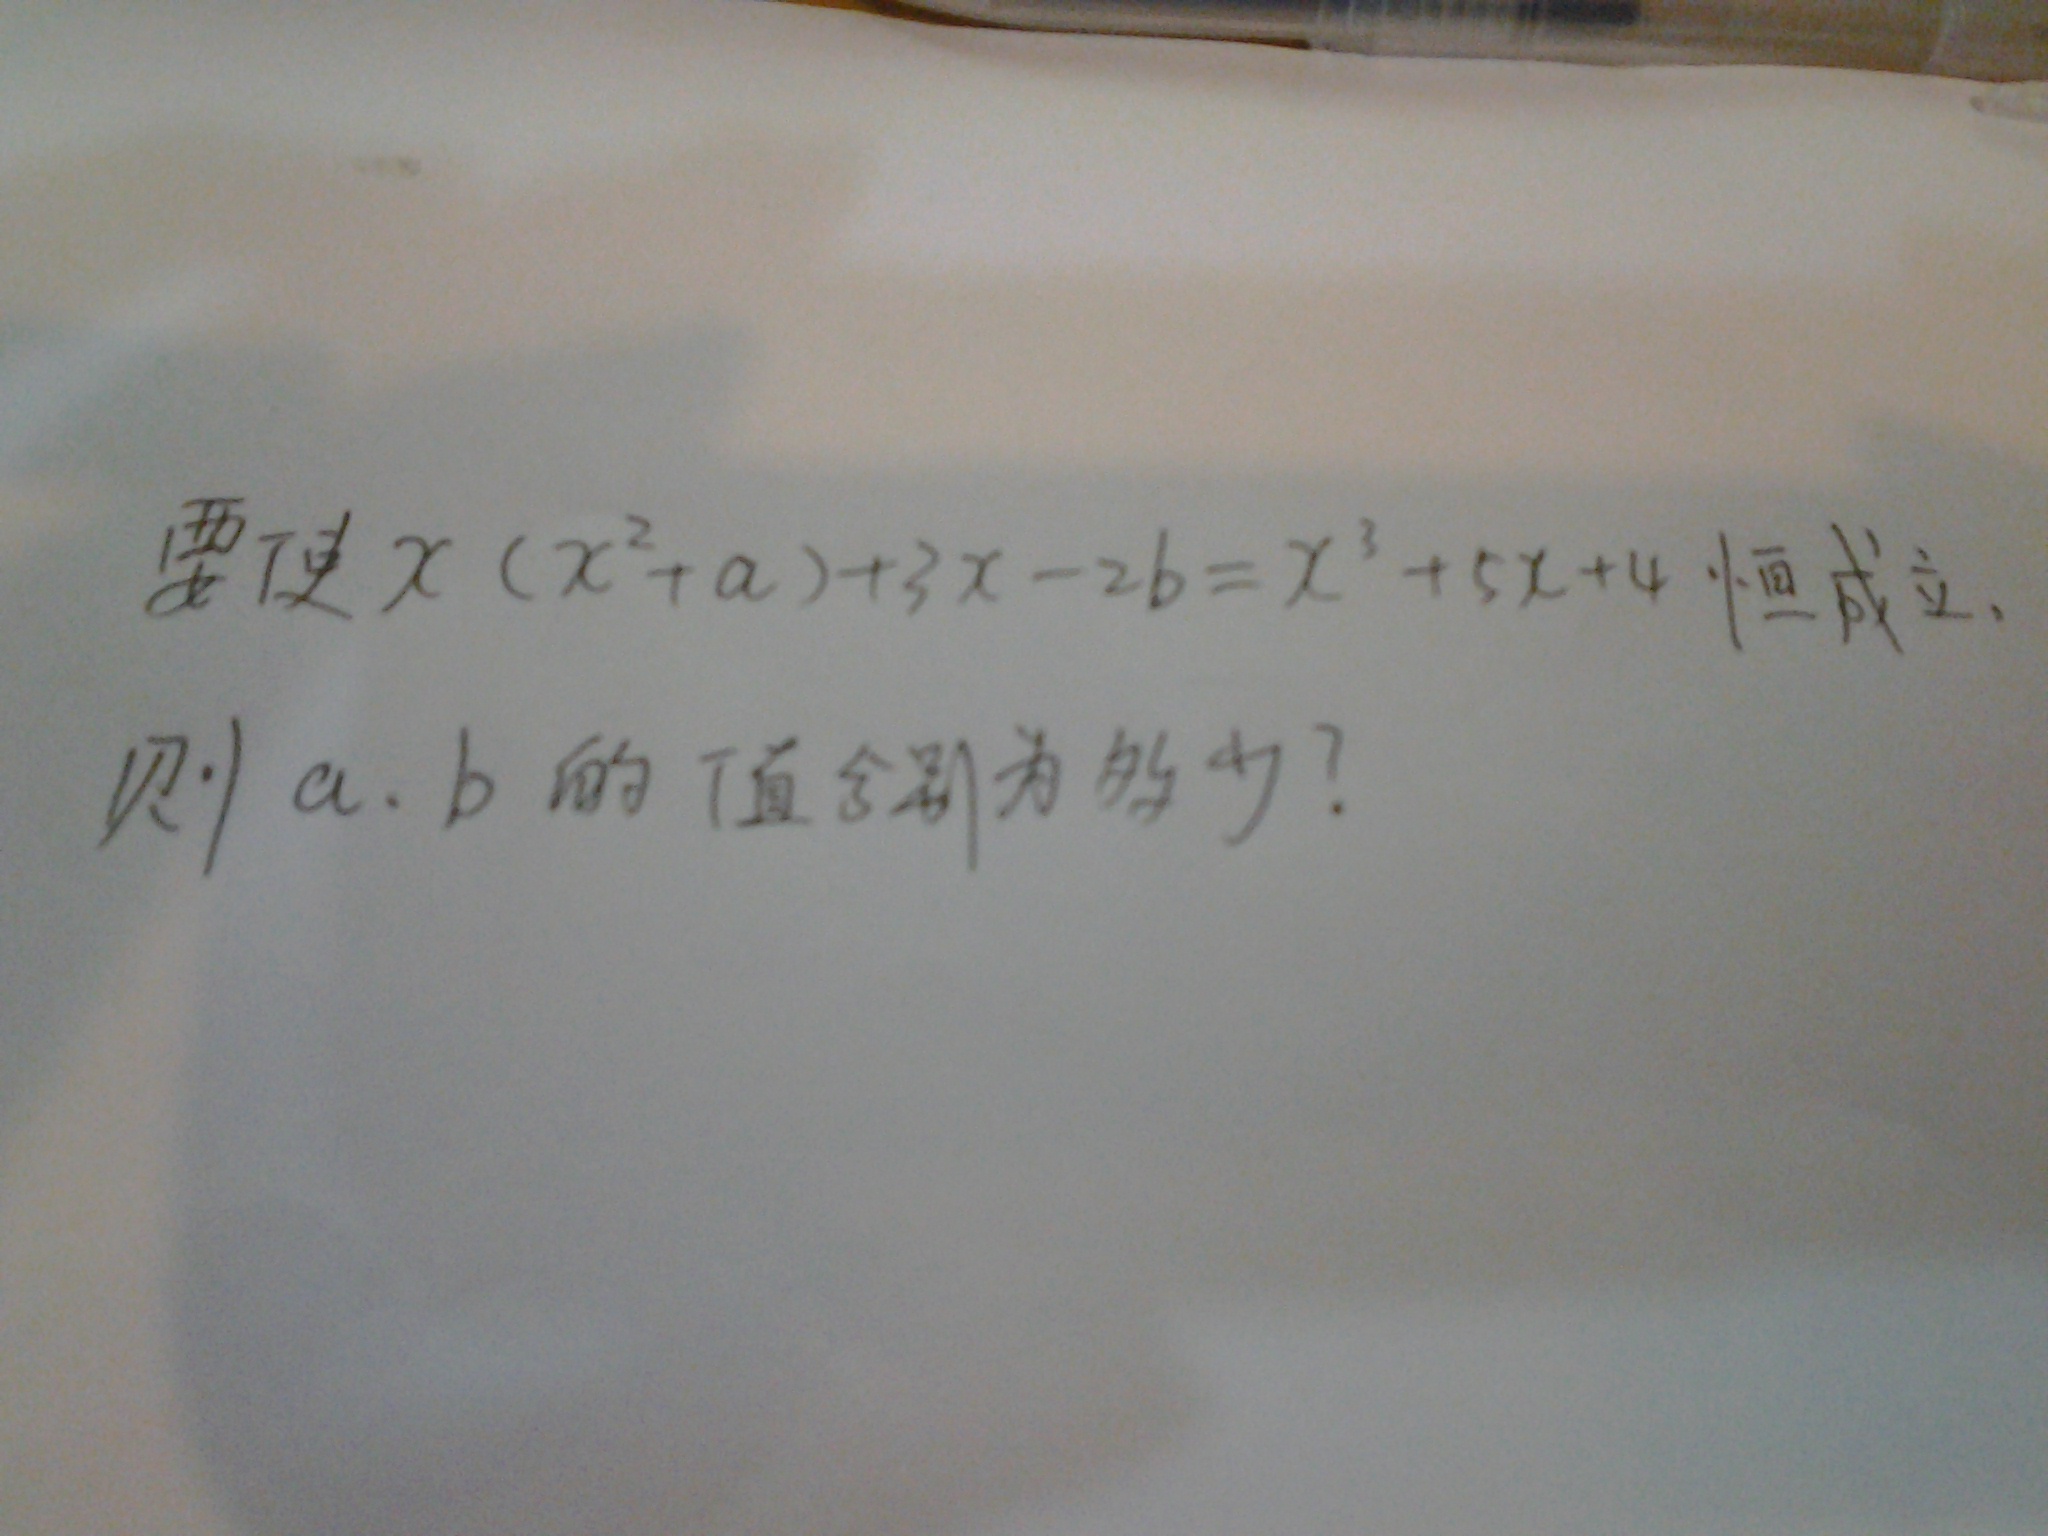 要使x(x²+a)+3x-2b=x³+5x+4恒成立,
则a.b的值分别为多少?